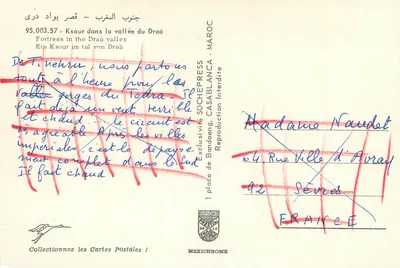 جنوب المغرب - قصر بواد درى
95.003.57 - Ksour dans la vallée du Draâ
Fortress in the Draâ valley
Ein Ksour im tal von Draâ
De Tinehrir, nous partons
toute à l'heure pour les
gorges du Todra. Il
fait déjà un vent terrible
et chaud, le circuit est
agréable. Après les villes
impériales, c'est le dépayse-
ment complet dans le Sud
Il fait chaud
Collectionnez les Cartes Postales !
Exclusivité SOCHEPRESS
1 place de Bandoeng, CASABLANCA - MAROC
Reproduction interdite
MEXICHROME
Madame Naudot
64 Rue Ville d'Avray
92 Sèvres
FRANCE